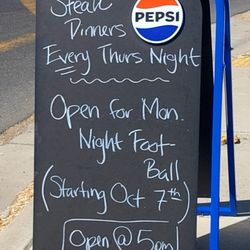 Steak
Dinners
PEPSI
Every Thurs Night
Open for Mon.
Night Foot-
Ball
(Starting Oct 7th)
Open @ 5pm